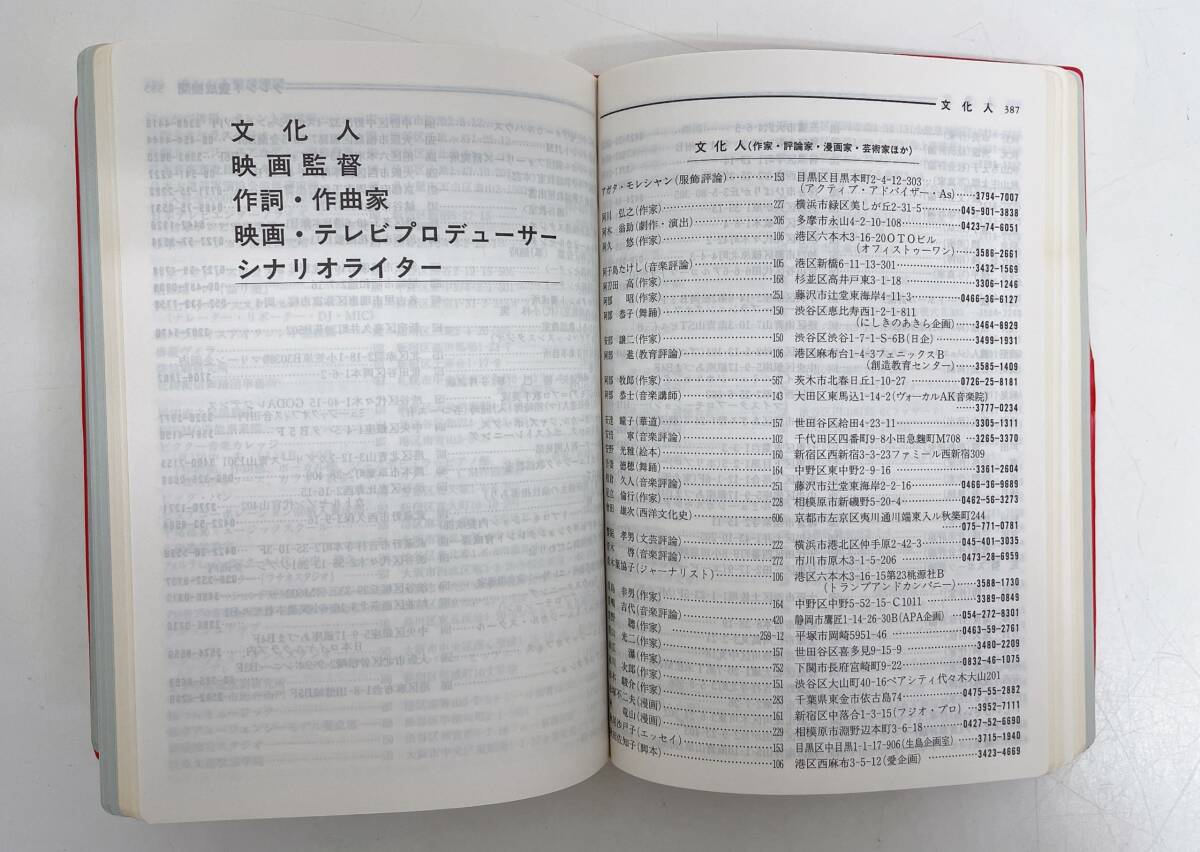 文化人
映画監督
作詞・作曲家
映画・テレビプロデューサー
シナリオライター
文化人 387
文化人(作家・評論家・漫画家・芸術家ほか)
アガタ・モレシャン(服飾評論)…………153 目黒区目黒本町2-4-12-303
(アクティブ・アドバイザー・As)……3794-7007
阿川 弘之(作家)……227 横浜市緑区美しが丘2-31-5……045-901-3838
阿木 翁助(劇作・演出)……206 多摩市永山4-2-10-108……0423-74-6051
阿久 悠(作家)……106 港区六本木3-16-20OTOビル
(オフィストゥーワン)……3586-2661
阿子島たけし(音楽評論)……105 港区新橋6-11-13-301……3432-1569
阿刀田 高(作家)……168 杉並区高井戸東3-1-18……3306-1246
阿部 昭(作家)……251 藤沢市辻堂東海岸4-11-3……0466-36-6127
阿部 恭子(舞踊)……150 渋谷区恵比寿西1-2-1-811
(にしきのあきら企画)……3464-8929
安部 譲二(作家)……150 渋谷区渋谷1-7-1-S-6B(日企)……3499-1931
阿部 進(教育評論)……106 港区麻布台1-4-3フェニックスB
(創造教育センター)……3585-1409
阿部 牧郎(作家)……567 茨木市北春日丘1-10-27……0726-25-8181
阿部 恭士(音楽講師)……143 大田区東馬込1-14-2(ヴォーカルAK音楽院)
……3777-0234
安達 瞳子(華道)……157 世田谷区給田4-23-11……3305-1311
安倍 寧(音楽評論)……102 千代田区四番町9-8小田急麴町M708……3265-3370
安野 光雅(絵本)……160 新宿区西新宿3-3-23ファミール西新宿309
吾妻 徳穂(舞踊)……164 中野区東中野2-9-16……3361-2604
相倉 久人(音楽評論)……251 藤沢市辻堂東海岸2-2-16……0466-36-9689
足立 倫行(作家)……228 相模原市新磯野5-20-4……0462-56-3273
会田 雄次(西洋文化史)……606 京都市左京区夷川通川端東入ル秋築町244
……075-771-0781
孝男(文芸評論)……222 横浜市港北区仲手原2-42-3……045-401-3035
青木 啓(音楽評論)……272 市川市原木3-1-5-206……0473-28-6959
協子(ジャーナリスト)……106 港区六本木3-16-15第23桃源社B
(トランプアンドカンパニー)……3588-1730
青島 幸男(作家)……164 中野区中野5-52-15-C1011……3389-0849
吉代(音楽評論)……420 静岡市鷹匠1-14-26-30B(APA企画)……054-272-8301
青野 聰(作家)……259-12 平塚市岡崎5951-46……0463-59-2761
光二(作家)……157 世田谷区喜多見9-15-9……3480-2209
瀑(作家)……752 下関市長府宮崎町9-22……0832-46-1075
次郎(作家)……151 渋谷区大山町40-16ベアシティ代々木大山201
毅介(作家)……283 千葉県東金市依古島74……0475-55-2882
赤塚不二夫(漫画)……161 新宿区中落合1-3-15(フジオ・プロ)……3952-7111
竜山(漫画)……229 相模原市淵野辺本町3-6-18……0427-52-6690
沙戸子(エッセイ)……153 目黒区中目黒1-1-17-906(生島企画室)……3715-1940
佐知子(脚本)……106 港区西麻布3-5-12(愛企画)……3423-4669